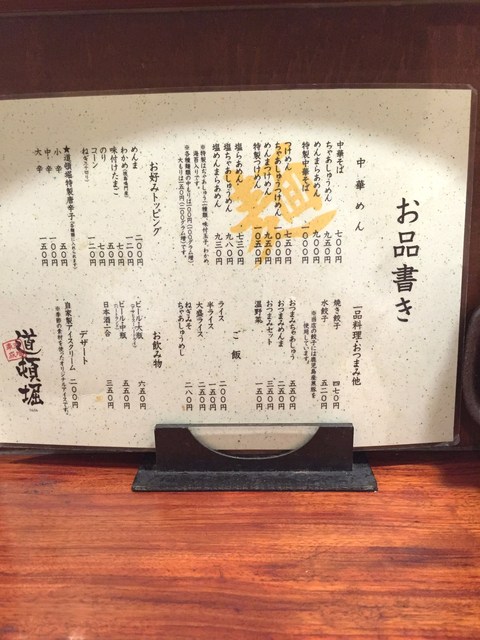 お品書き
中華めん
中華そば 七〇〇円
ちゃあしゅうめん 九五〇円
めんまらあめん 九〇〇円
特製中華そば 一〇〇〇円
つけめん 七五〇円
ちゃあしゅうつけめん 一〇〇〇円
めんまつけめん 九五〇円
特製つけめん 一〇五〇円
塩らあめん 七三〇円
塩ちゃあしゅうめん 九八〇円
塩めんまらあめん 九三〇円
お好みトッピング
めんま 二〇〇円
味付けたまご 一〇〇円
のり
コーン 一〇〇円
★道頓堀特製唐辛子
小辛 五〇円
中辛 一〇〇円
大辛 一五〇円
一品料理・おつまみ他
焼き餃子 四七〇円
水餃子 五二〇円
おつまみちゃあしゅう 五五〇円
おつまみめんま 五五〇円
おつまみセット 三五〇円
温野菜 一五〇円
ご飯
ライス 二〇〇円
半ライス 一五〇円
大盛ライス 二五〇円
ねぎみそ
ちゃあしゅうめし 二八〇円
お飲み物
ビール・大瓶 六五〇円
ビール・中瓶 五五〇円
日本酒・一合 三五〇円
デザート
自家製アイスクリーム 二〇〇円
※季節の素材を使ったオリジナルアイスです。
道頓堀